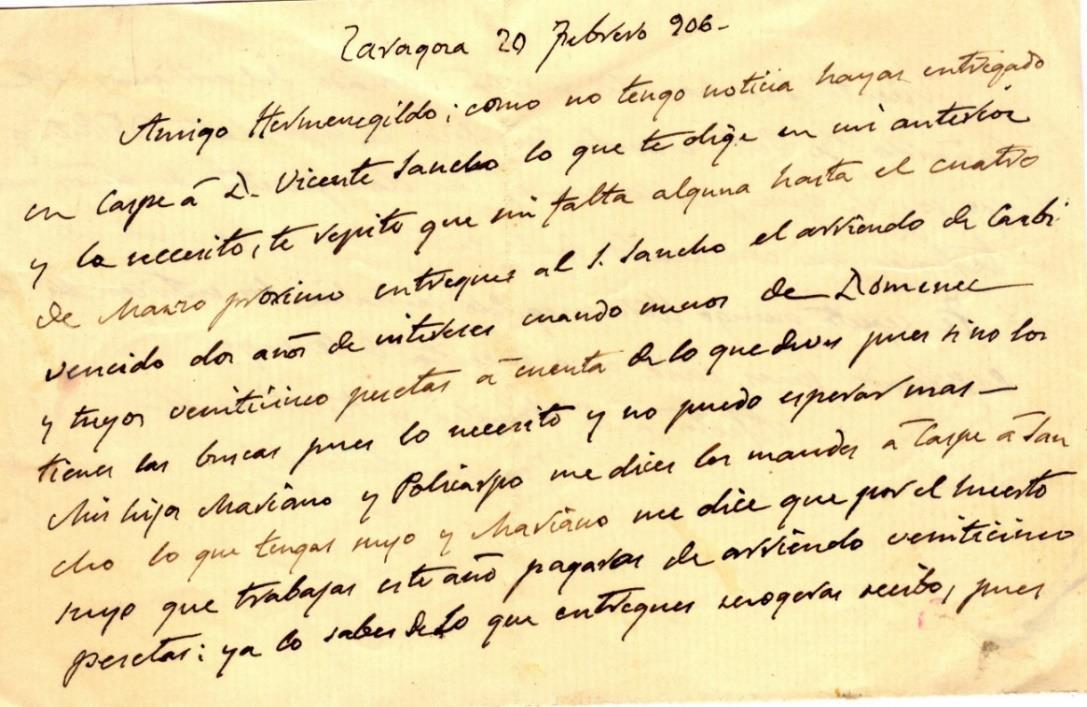 Zaragoza 20 Febrero 906-
Amigo Hermenegildo; como no tengo noticia hayas entregado
en Caspe á D. Vicente Sancho lo que te dige en mi anterior
y lo necesito, te repito que sin falta alguna hasta el cuatro
de Marzo proximo entregues al S. Sancho el arriendo de
vencido dos años de intereses cuando menos de Domenec
y tuyos veinticinco pesetas á cuenta de lo que deves pues si no los
tienes las buscas pues lo necesito y no puedo esperar mas-
Mis hijos Mariano y Policarpo me dicen les mandes á Caspe á San
cho lo que tengas suyo y Mariano me dice que por el huerto
suyo que trabajas este año pagaras de arriendo veinticinco
pesetas: ya lo sabes de lo que entregues recogeras recibo, pues